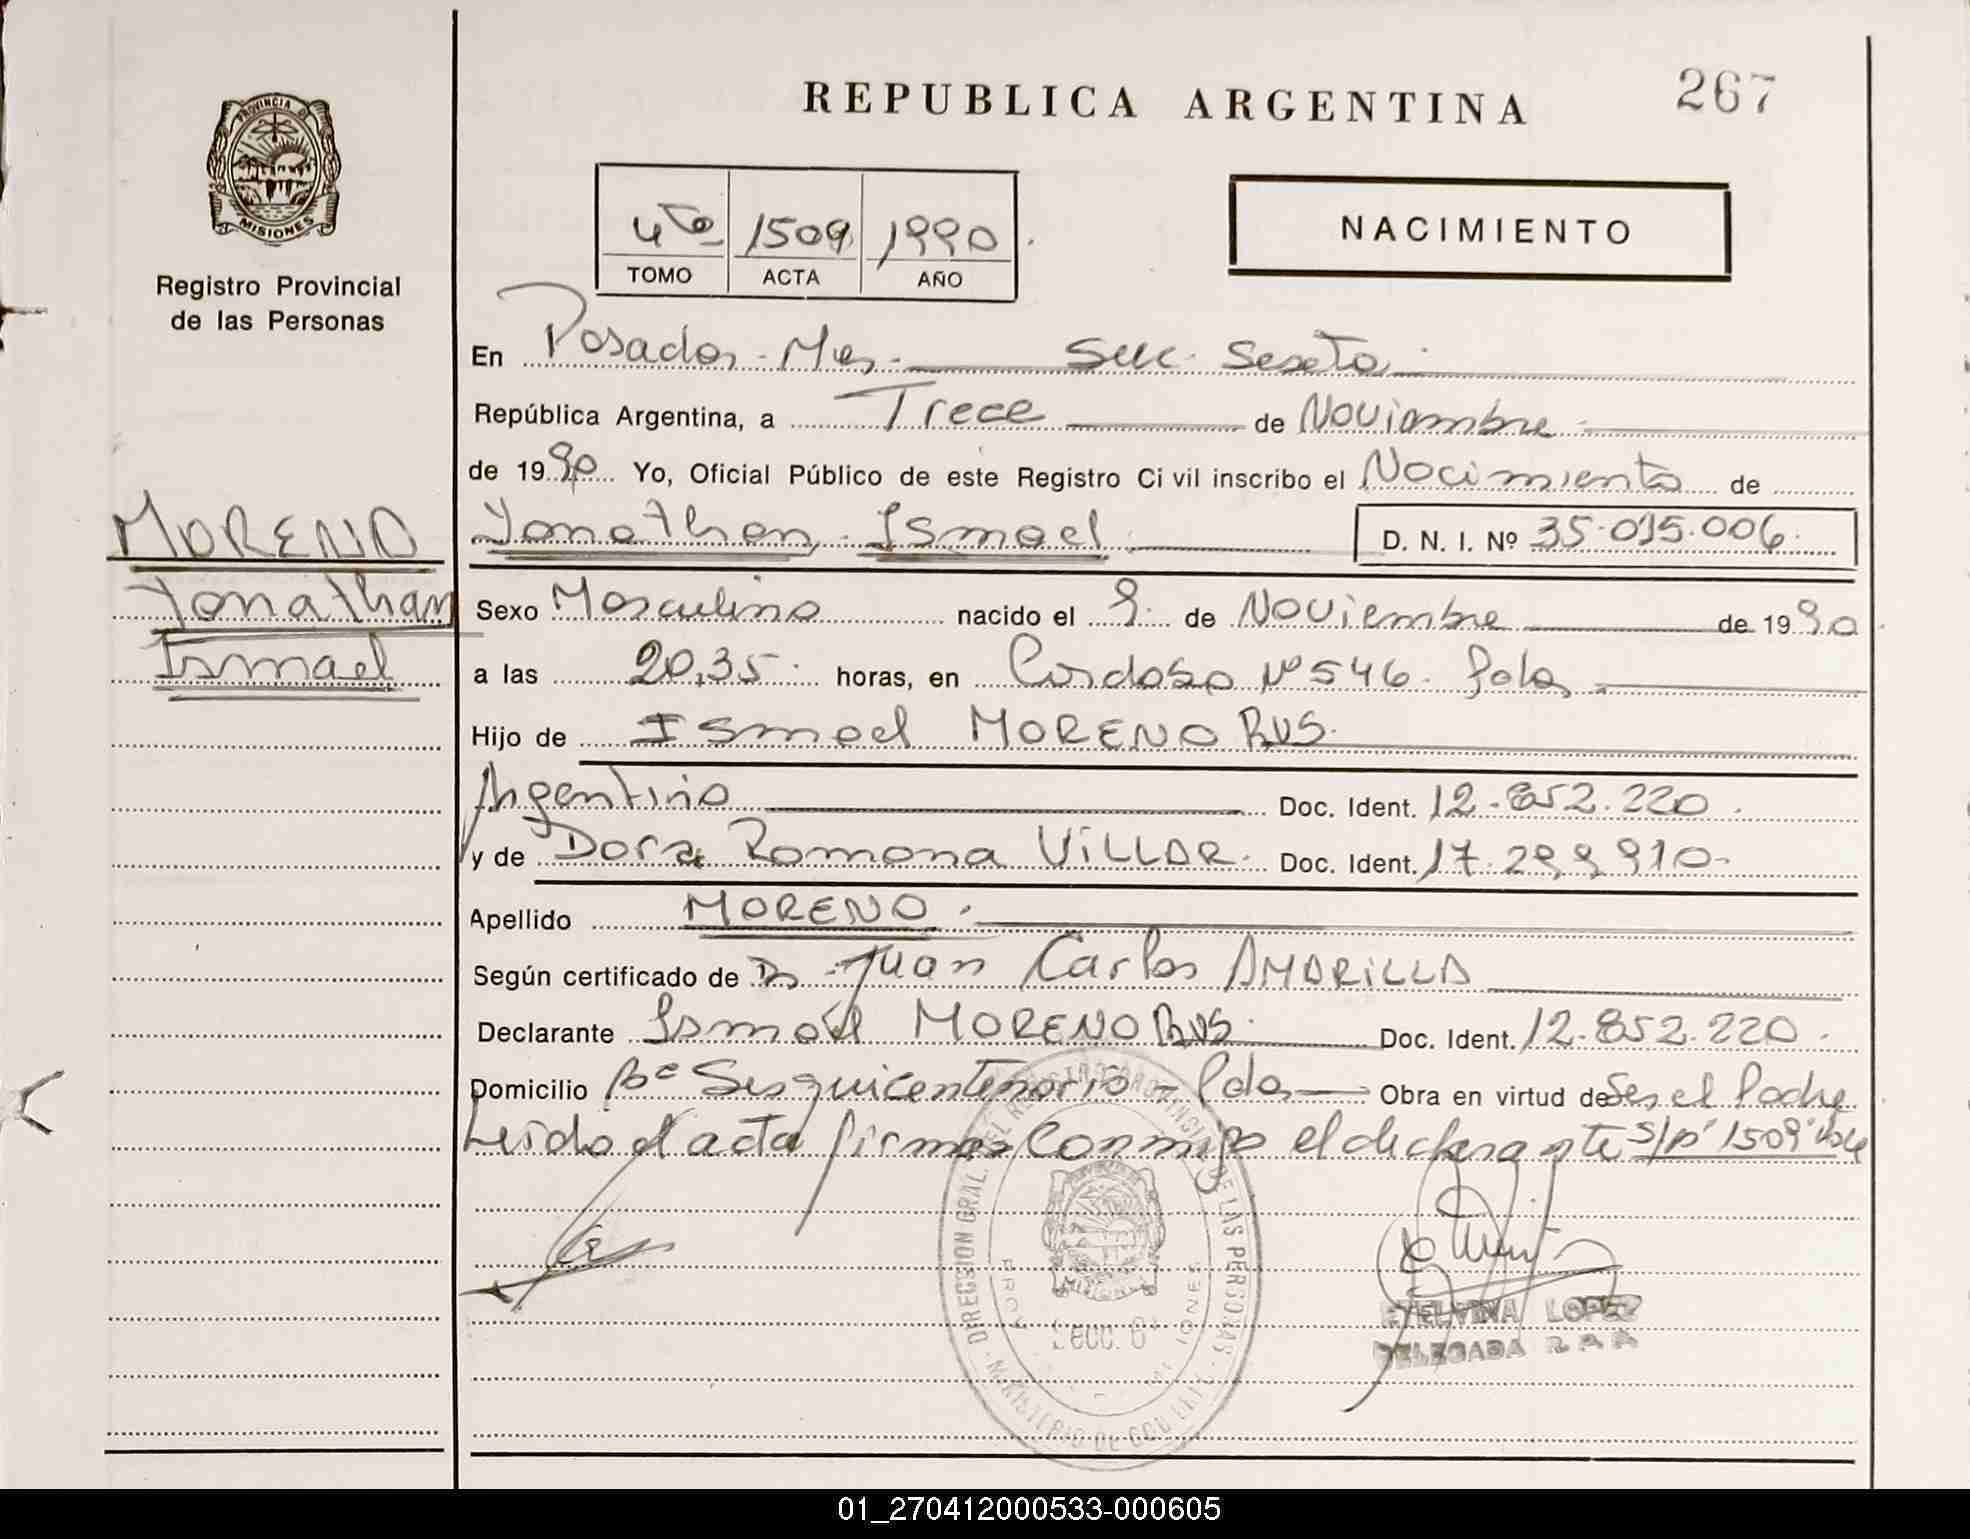 REPUBLICA ARGENTINA
267
PROVINCIA DE
MISIONES
Registro Provincial
de las Personas
4to 1509 1990
TOMO ACTA AÑO
NACIMIENTO
En Posadas - Mnes. Secc. Sexta
República Argentina, a Trece de Noviembre
de 1990 Yo, Oficial Público de este Registro Civil inscribo el Nacimiento de
MORENO
Yonathan
Ismael
Yonathan Ismael D. N. I. Nº 35.015.006.
Sexo Masculino nacido el 9 de Noviembre de 1990
a las 20,35 horas, en Cardoso Nº 546. Pdas
Hijo de Ismael MORENO RUS.
Argentino Doc. Ident. 12.852.220.
y de Dora Ramona VILLAR. Doc. Ident. 17.299.910-
Apellido MORENO.
Según certificado de Dr. Juan Carlos AMARILLA
Declarante Ismael MORENO RUS. Doc. Ident. 12.852.220.
Domicilio Bº Sesquicentenario - Pdas Obra en virtud de Ser el Padre
Leído el acta firma conmigo el declarante s/r 1509 vale
DIRECCION GRAL. DEL REGISTRO PROVINCIAL DE LAS PERSONAS
MINISTERIO DE GOBIERNO
PROV. MISIONES
SECC. 6ª
ETELVINA LOPEZ
DELEGADA
01_270412000533-000605